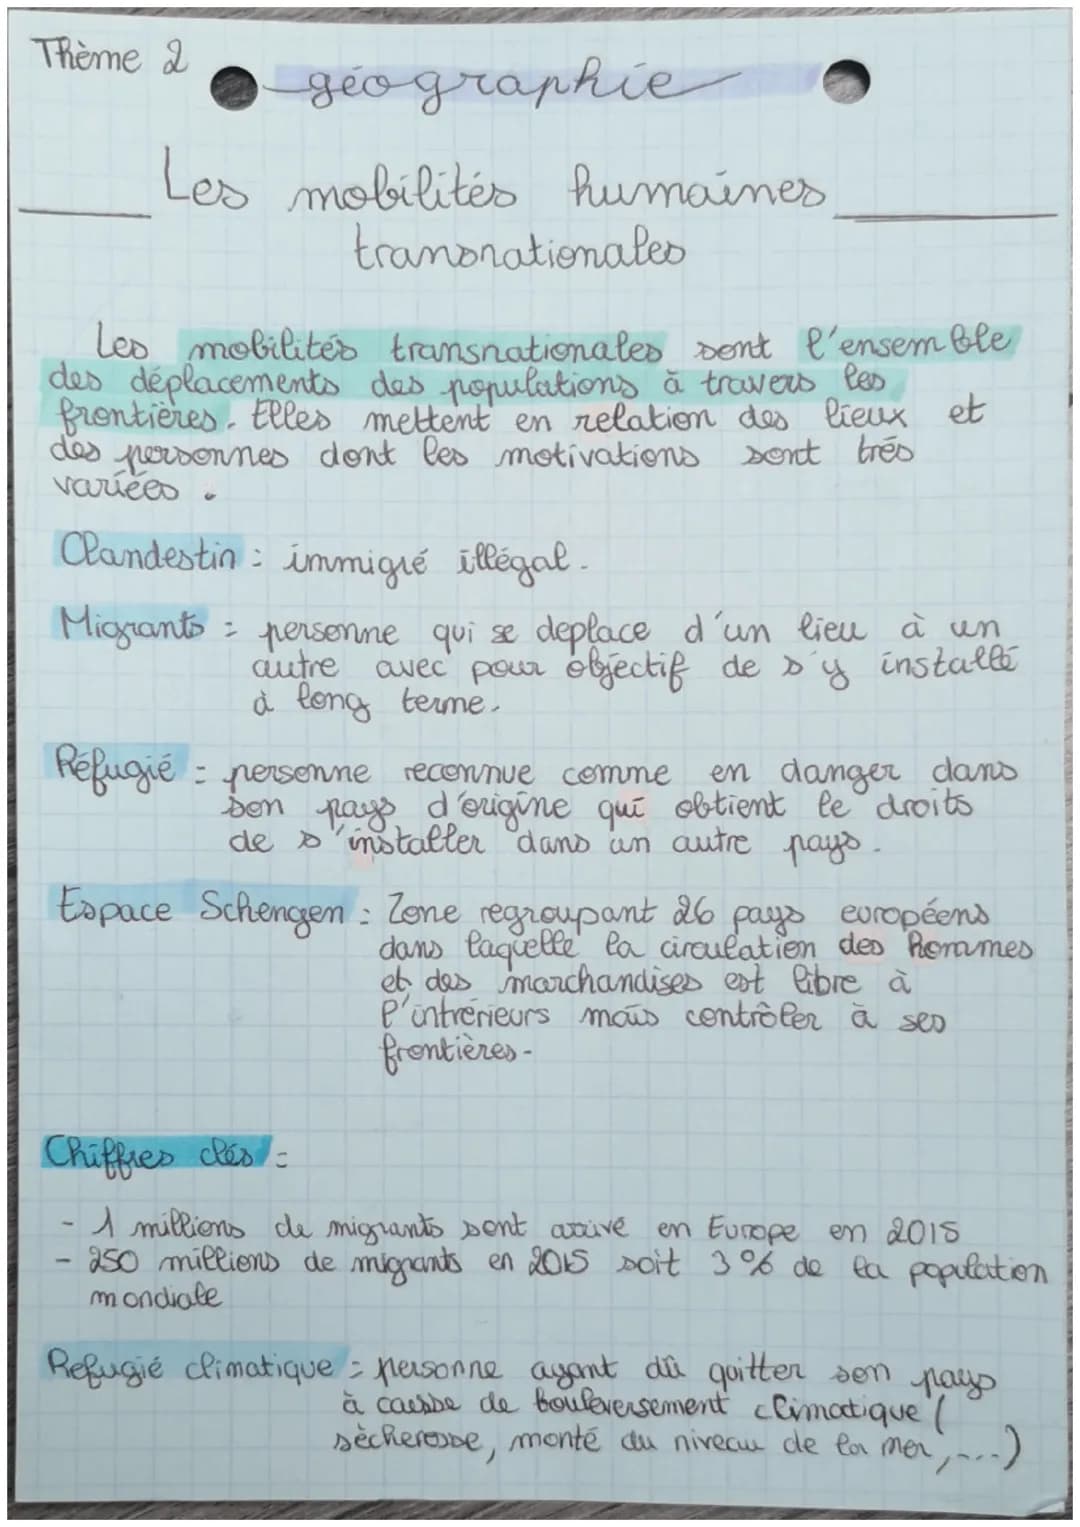 Thème 2
géographie
Les mobilités humaines
transnationales
Les mobilités transnationales sont l'ensemble
des déplacements des populations à travers les
frontières. Elles mettent en relation des lieux et
des personnes dont les motivations sont trés
variées.
Clandestin : immigré illégal.
Migrants : personne qui se deplace d'un lieu à un
autre avec pour objectif de s'y installé
à long terme.
Réfugié : personne reconnue comme en danger dans
son pays d'origine qui obtient le droits
de s'installer dans un autre pays.
Espace Schengen : Zone regroupant 26 pays européens
dans laquelle la circulation des Hommes
et des marchandises est libre à
l'intrérieurs mais contrôler à ses
frontières.
Chiffres clés :
- 1 millions de migrants sont arrivé en Europe en 2015
- 250 millions de migrants en 2015 soit 3% de la population
mondiale
Refugié climatique : personne ayant dû quitter son pays
à causse de bouleversement climatique (
sècheresse, monté du niveau de la mer,....)